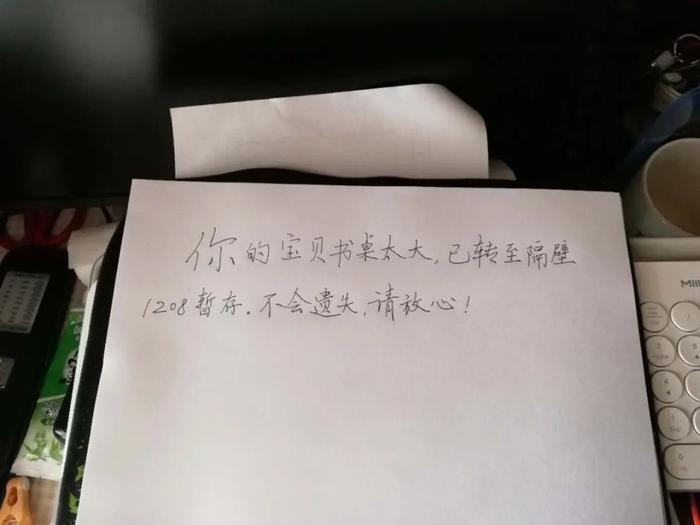 你的宝贝书桌太大，已转至隔壁
1208暂存。不会遗失，请放心！